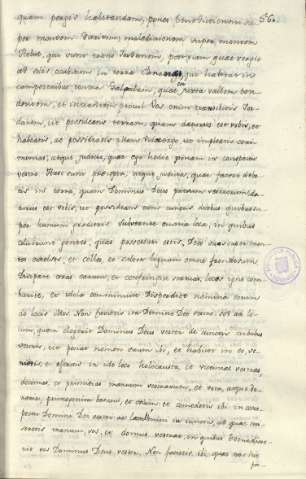 quam pergis habitandam, pones benedictionem su 56.
per montem Garizim, maledictionem super montem
Hebal, qui sunt trans Jordanem, post viam quae vergit
ad solis occubitum in terra Chananaei, qui habitat in
campestribus contra Galgalam, quae est juxta vallem ten
dentem, et intrantem procul. Vos enim transibitis Jor
danem, ut possideatis terram, quam daturus est vobis, ut
habeatis, ac possideatis illam. Videte ergo, ut impleatis caere
monias, atque judicia, quae ego hodie ponam in conspectu
vestro. Haec sunt praecepta, atque judicia, quae facere debe
tis in terra, quam Dominus Deus patrum
est vobis, ut possideatis eam cunctis diebus quibus su
per humum gradieris. Subvertite omnia loca, in quibus
coluerunt gentes, quas possessuri estis, Deos suos super mon
tes excelsos, et colles, et subter lignum omne frondosum.
Dissipate aras eorum, et confringite statuas, lucos igne com
burite, et idola comminuite: disperdite nomina eorum
de locis illis. Non facietis ita Domino Deo vestro, sed ad lo
cum, quem elegerit Dominus Deus vester de cunctis tribubus
vestris, ut ponat nomen suum ibi, et habitet in eo, ve
nietis, et offeretis in illo loco holocausta, et victimas vestras,
decimas, et primitias manuum vestrarum, et vota, atque do
naria, primogenita boum, et ovium. et comedetis ibi in cons
pectu Domini Dei vestri, ac laetabimini in cunctis, ad quae mi
seritis manum, vos, et domus vestrae, in quibus benedixerit
vobis Dominus Deus vester. Non facietis ibi quae nos hic